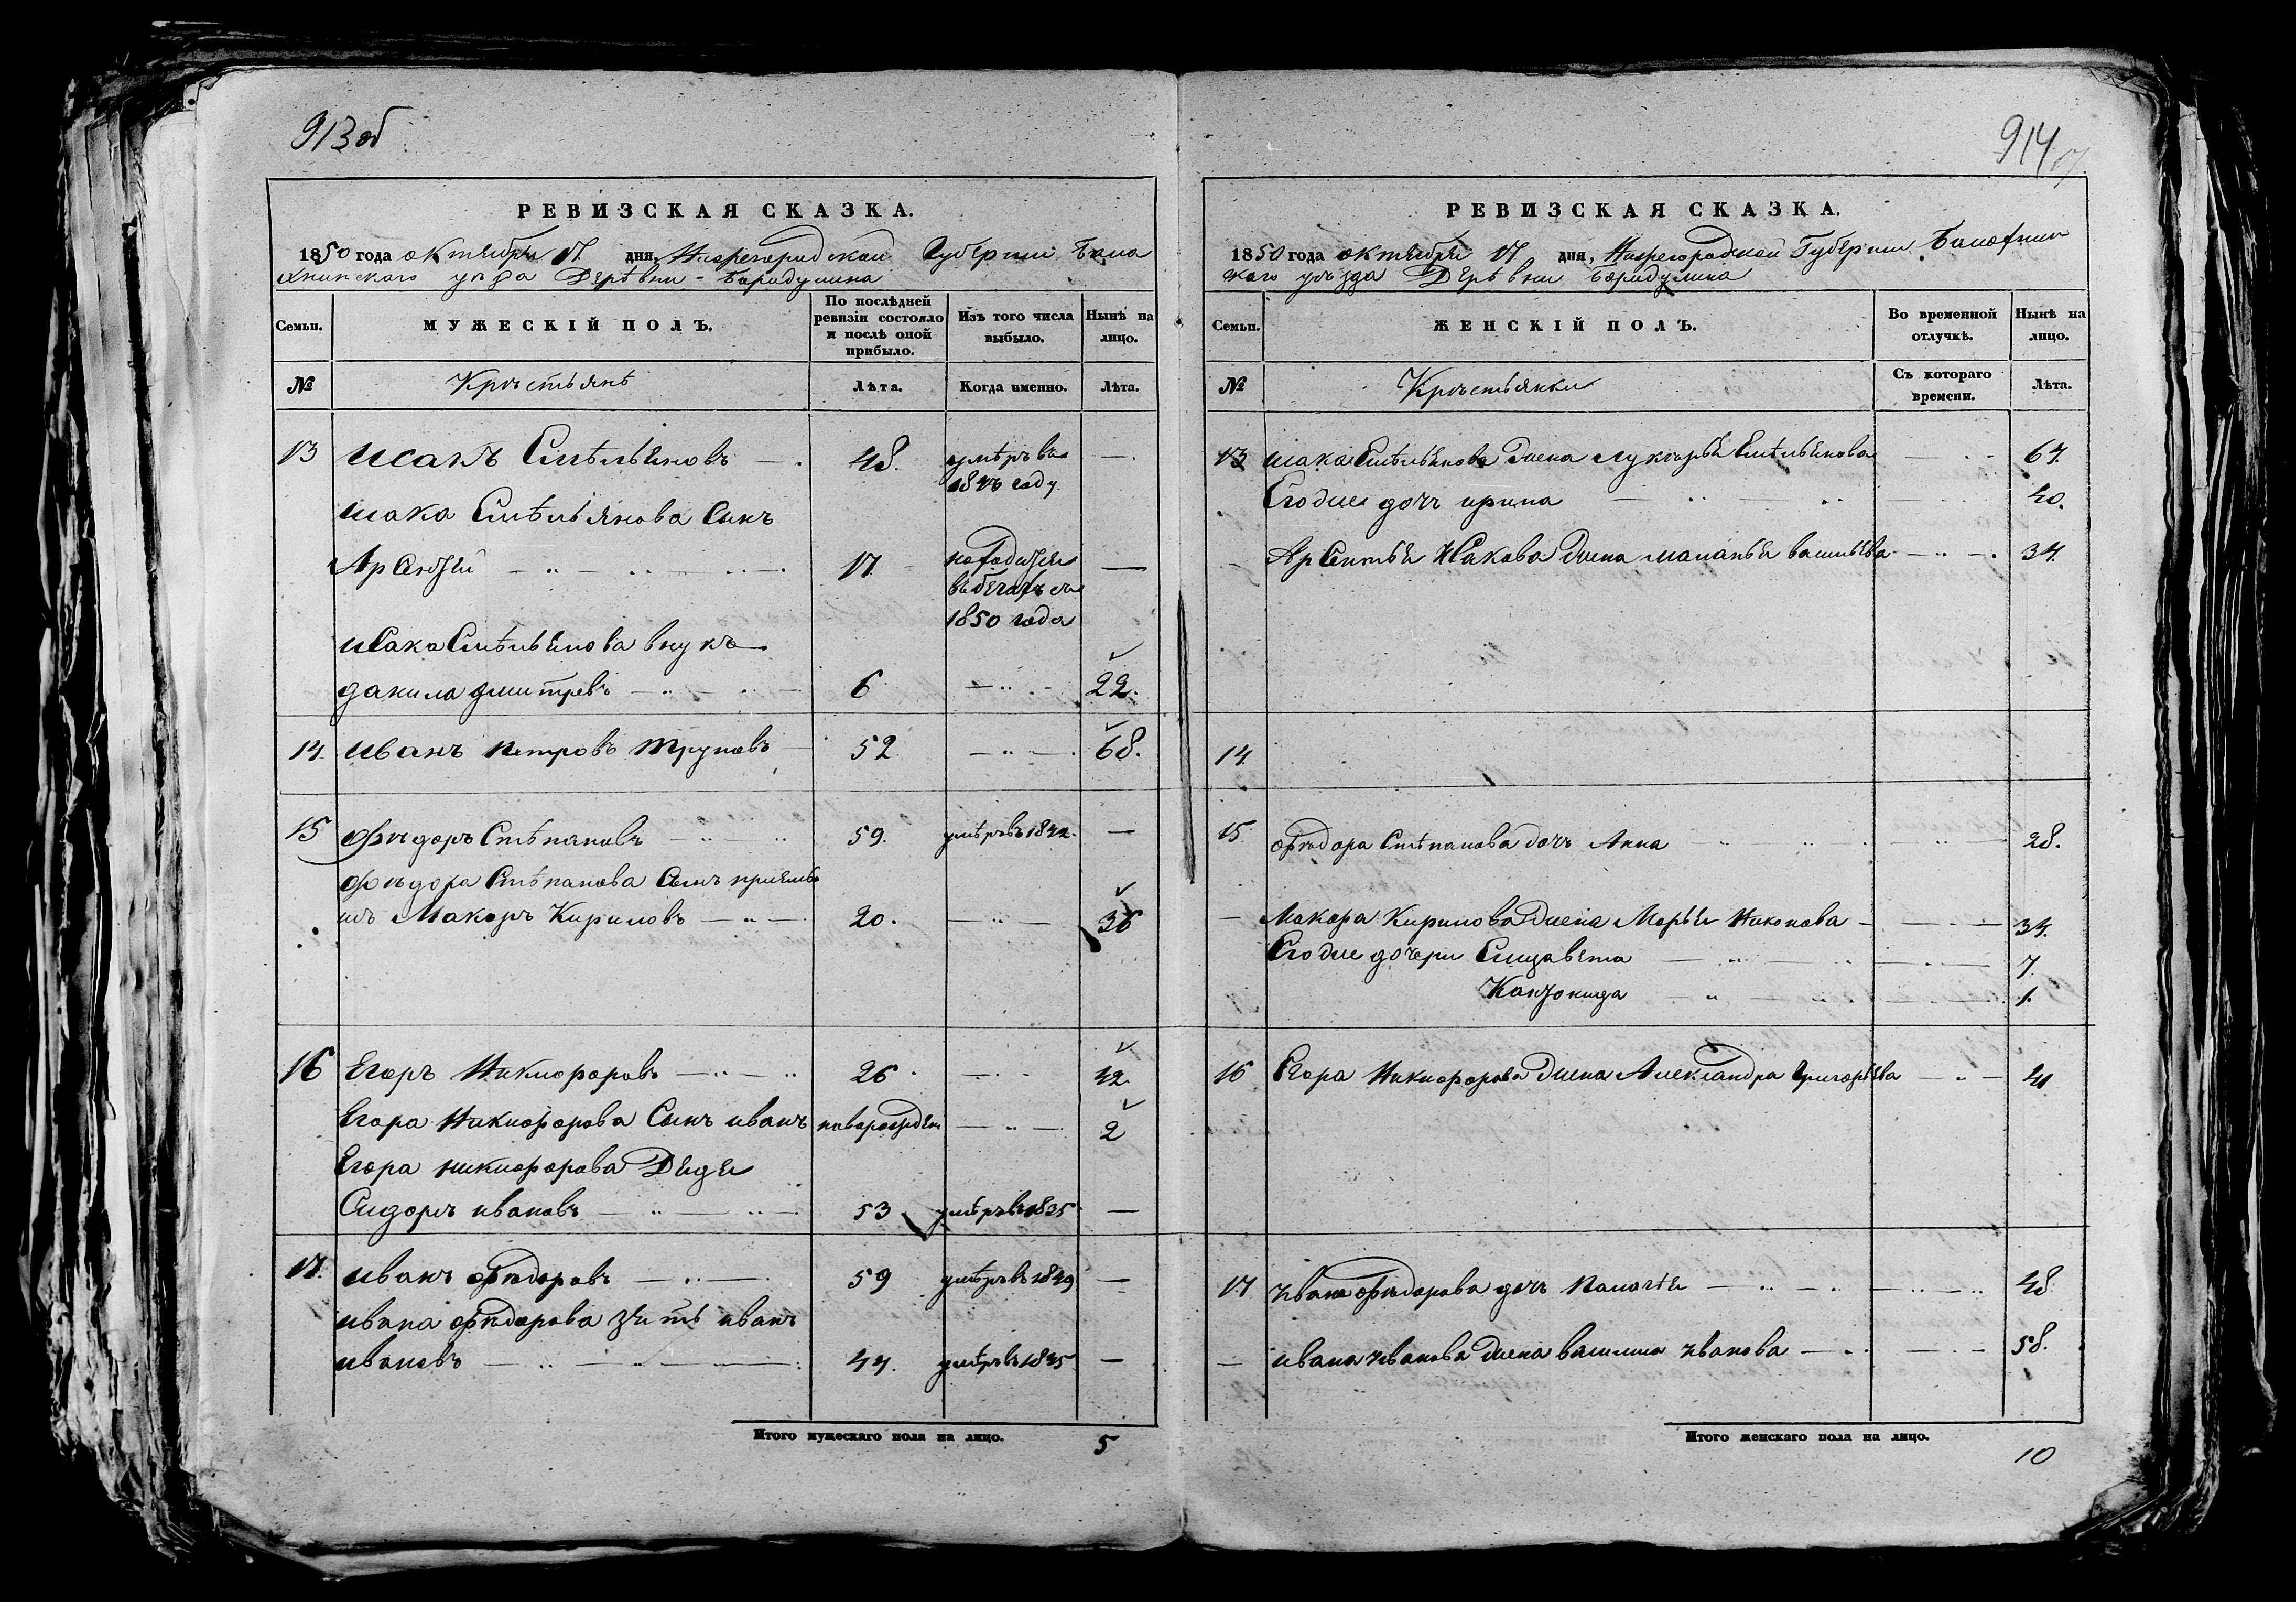 913 об
РЕВИЗСКАЯ СКАЗКА.
1850 года октября 17 дня, Нижегородской Губернии Бала
хнинскаго уезда Деревни - Бородулина
Семьи.
МУЖЕСКІЙ ПОЛЪ.
По послѣдней ревизіи состояло и послѣ оной прибыло.
Изъ того числа выбыло.
Нынѣ на лицо.
№
Крестьянѣ
Лѣта.
Когда именно.
Лѣта.
13 Исакъ Емѣльяновъ 48. умѣръ въ —
184 году
Исака Емѣльянова Сынъ
Арсентей 17. находится —
въ бегахъ съ
1850 года
Исака Емѣльянова внукъ
данила дмитревъ 6 22.
14. иванъ петровъ труновъ 52 68.
15 Федоръ Степановъ 59. умѣръ въ 1842. —
Федора Степанова Сынъ приемы
шъ Макоръ Кириловъ 20. 36
16 Егоръ Никифоровъ 26 42.
Егора Никифорова Сынъ иванъ новорожден 2
Егора никифорова Дядя
Сидоръ ивановъ 53 умѣръ въ 1835 —
17. иванъ федоровъ 59 умѣръ въ 1849 —
ивана федорова зять иванъ
ивановъ 44. умѣръ въ 1845 —
Итого мужескаго пола на лицо. 5
914
17
РЕВИЗСКАЯ СКАЗКА.
1850 года октября 17 дня, Нижегородской Губернии Балахнин
скаго уезда Деревни Бородулина
Семьи.
ЖЕНСКІЙ ПОЛЪ.
Во временной отлучкѣ.
Нынѣ на лицо.
№
Крестьянки
Съ котораго времени.
Лѣта.
13 исака Емѣльянова жена лукерья Емѣльянова 64.
Егоже дочъ ирина 40.
Арсентья Исакова жена маланья васильева 34.
14.
15. федора Степанова дочъ Анна 28.
Макора Кирилова жена Марья Никонова 34.
Егоже дочери Елизавета 7.
1.
16 Егора Никифорова жена Александра Григорьева 41
17 ивана федорова дочъ Палагѣя 48
ивана иванова жена василиса иванова 58.
Итого женскаго пола на лицо.
10